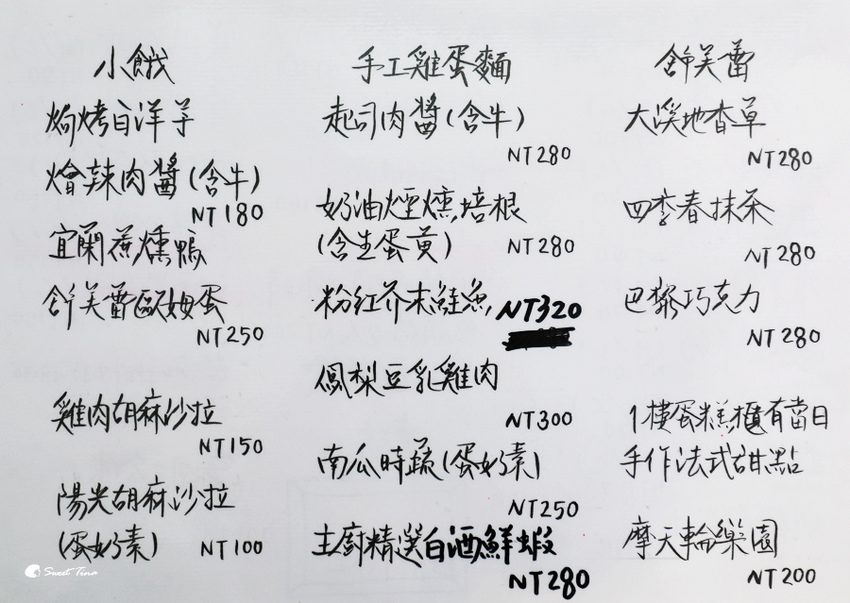 小餓
焗烤白洋芋
燴辣肉醬(含牛)
NT180
宜蘭蔗燻鴨
舒芙蕾歐姆蛋
NT250
雞肉胡麻沙拉
NT150
陽光胡麻沙拉
(蛋奶素) NT100
手工雞蛋麵
起司肉醬(含牛)
NT280
奶油煙燻培根
(含生蛋黃) NT280
粉紅芥末鮭魚 NT320
鳳梨豆乳雞肉
NT300
南瓜時蔬(蛋奶素)
NT250
主廚精選白酒鮮蝦
NT280
舒芙蕾
大溪地香草
NT280
四季春抹茶
NT280
巴黎巧克力
NT280
1樓蛋糕櫃有當日
手作法式甜點
摩天輪樂園
NT200
Sweet Tina